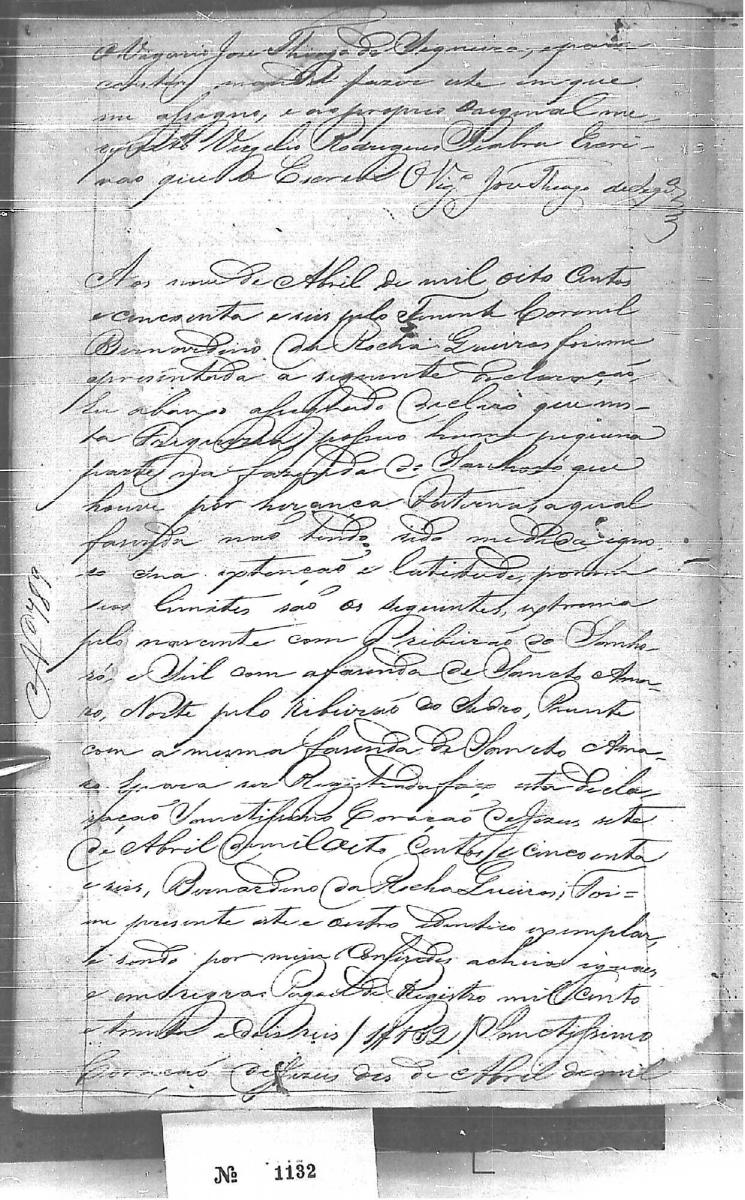 O Vigario José Thiago de Siqueira, e para
constar mandei fazer este em que
me assigno, e ao proprio Original me
Virgilio Rodrigues Seabra Escri-
vão que o Escrevi O Vigº José Thiago de Siqª
Aos nove de Abril de mil oito Centos
e cincoenta e seis pelo Tenente Coronel
Bernardino da Rocha Gueiros foi me
apresentada a seguinte declaração
Eu abaixo assignado declaro que nes-
ta Freguezia possuo huma piquena
parte na fazenda de que
houve por herança Paterna, a qual
fazenda não tendo sido medida igno-
ro sua extenção e latitude, porem
seos limites são os seguintes, extrema
pelo nascente com o ribeirão do Sanho-
ró, e Sul com a fazenda de Sancto Ama-
ro, Norte pelo ribeirão do Pedro, Poente
com a mesma fazenda de Sancto Ama-
ro para ser Registrada faço esta decla-
ração Sanctissimo Coração de Jezus sete
de Abril de mil oito Centos e cincoenta
e seis, Bernardino da Rocha Gueiros, Foi-
me presente este e outro identico exemplar,
e sendo por mim Conferidos achei iguaes
e em regra. Pagou de Registro mil cento
e trinta e dois reis / 1$132 / Sanctissimo
Coração de Jezus des de Abril de mil
Nº 789
№ 1132